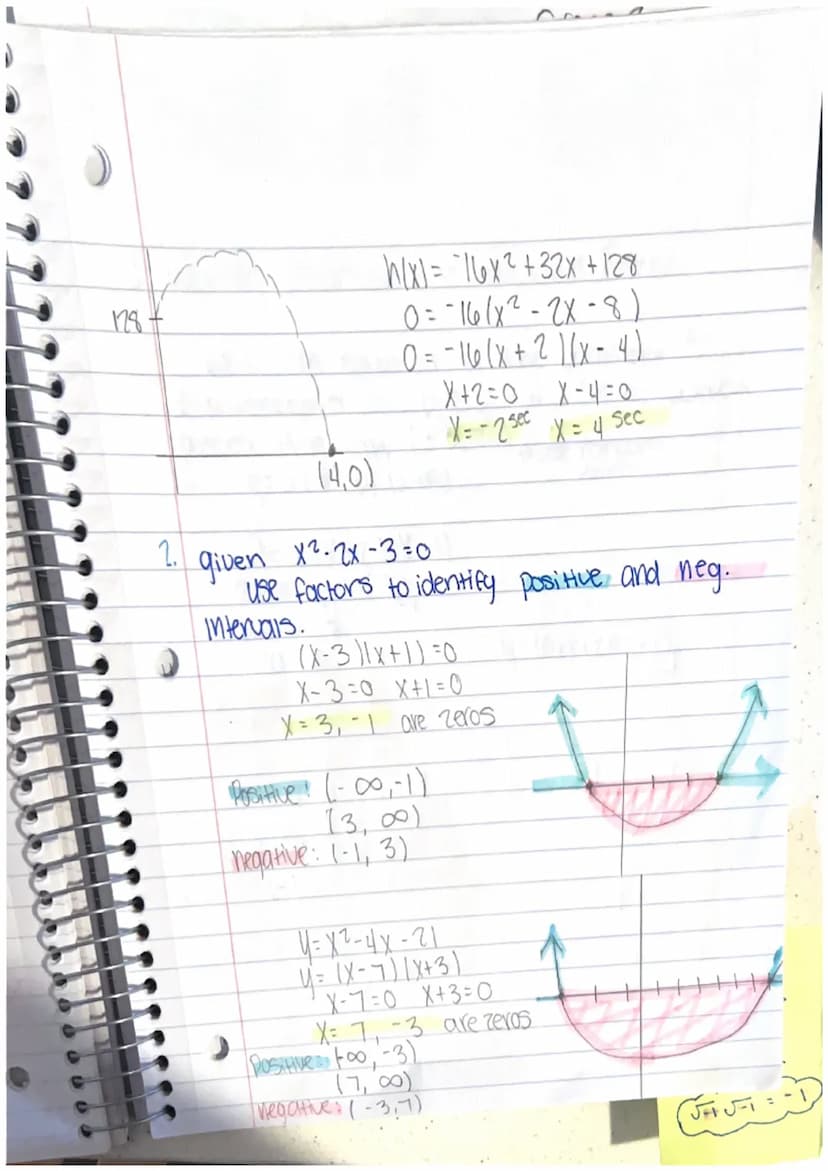 h(x) = -16x² + 32x + 128
128
0 = -16(x² - 2x - 8)
0 = -16(x + 2)(x - 4)
x+2=0 x-4=0
x=-2 sec x = 4 sec
(4,0)
2. given x² - 2x - 3 = 0
use factors to identify positive and neg.
intervals.
(x-3)(x+1) = 0
x-3=0 x+1=0
x = 3, -1 are zeros
Positive: (-∞, -1)
(3, ∞)
negative: (-1, 3)
y = x² - 4x - 21
y = (x-7)(x+3)
x-7=0 x+3=0
x = 7, -3 are zeros
Positive: (-∞, -3)
(7, ∞)
negative: (-3, 7)
√-1 √-1 = -1